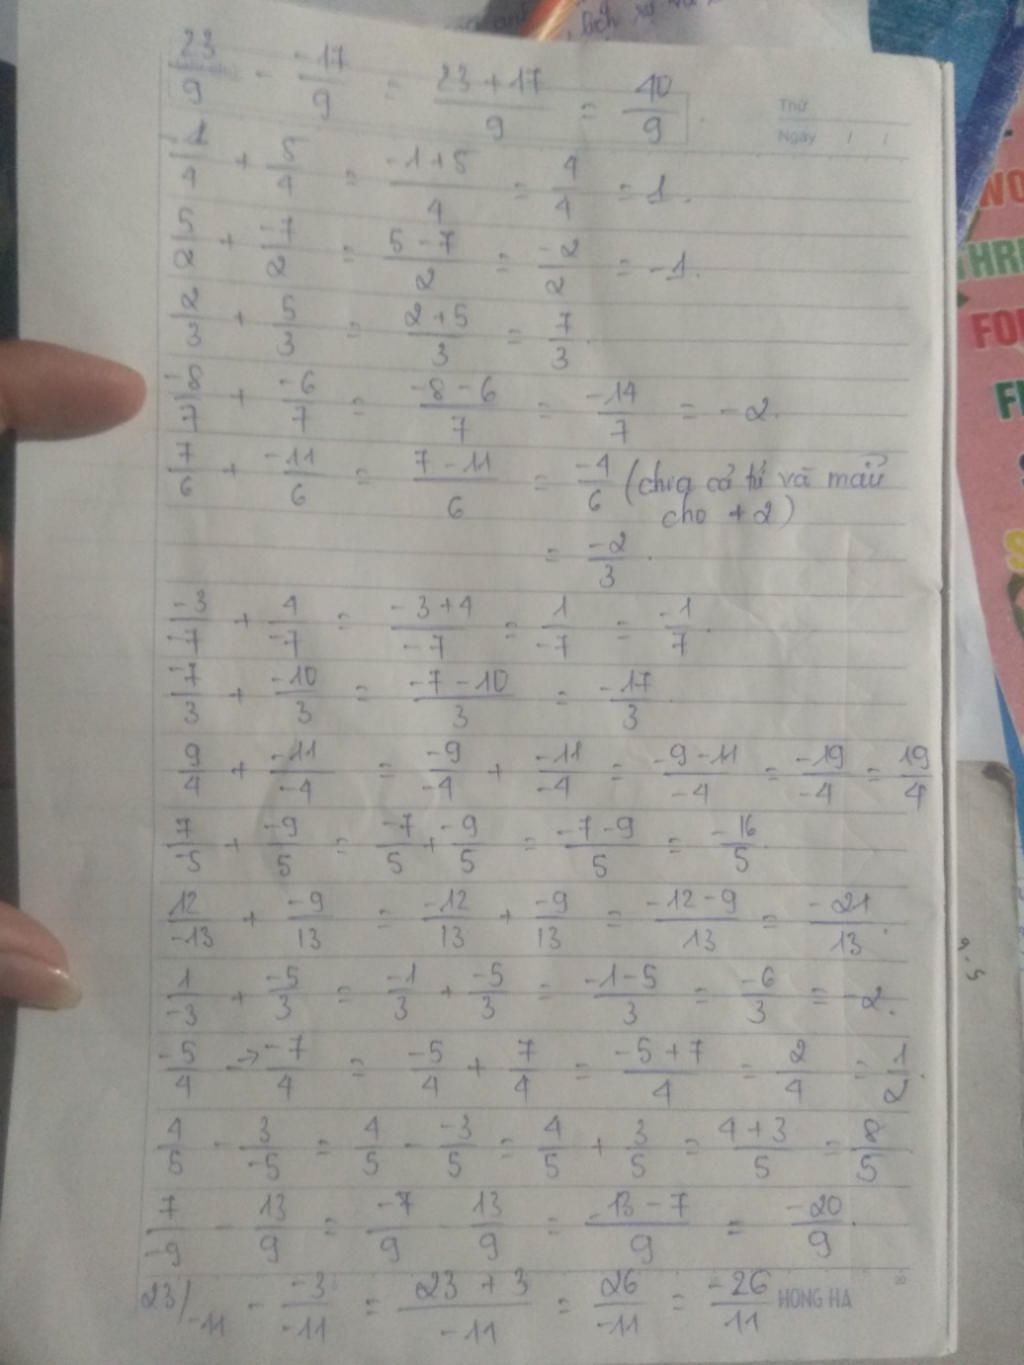 lịch sử và
23/9 - -17/9 = 23+17/9 = 40/9.
Thứ
Ngày / /
-1/4 + 5/4 = -1+5/4 = 4/4 = 1.
5/2 + -7/2 = 5-7/2 = -2/2 = -1.
2/3 + 5/3 = 2+5/3 = 7/3.
-8/7 + -6/7 = -8-6/7 = -14/7 = -2.
7/6 + -11/6 = 7-11/6 = -4/6 (chia cả tử và mẫu
cho +2)
= -2/3.
-3/-7 + 4/-7 = -3+4/-7 = 1/-7 = -1/7.
-7/3 + -10/3 = -7-10/3 = -17/3.
9/4 + -11/-4 = -9/-4 + -11/-4 = -9-11/-4 = -19/-4 = 19/4
7/-5 + -9/5 = -7/5 + -9/5 = -7-9/5 = -16/5.
12/-13 + -9/13 = -12/13 + -9/13 = -12-9/13 = -21/13.
1/-3 + -5/3 = -1/3 + -5/3 = -1-5/3 = -6/3 = -2.
-5/4 - -7/4 = -5/4 + 7/4 = -5+7/4 = 2/4 = 1/2.
4/5 - 3/-5 = 4/5 - -3/5 = 4/5 + 3/5 = 4+3/5 = 8/5.
7/-9 - 13/9 = -7/9 - 13/9 = -13-7/9 = -20/9.
23/-11 - -3/-11 = 23+3/-11 = 26/-11 = -26/11
HONG HA
WO
THRE
FO